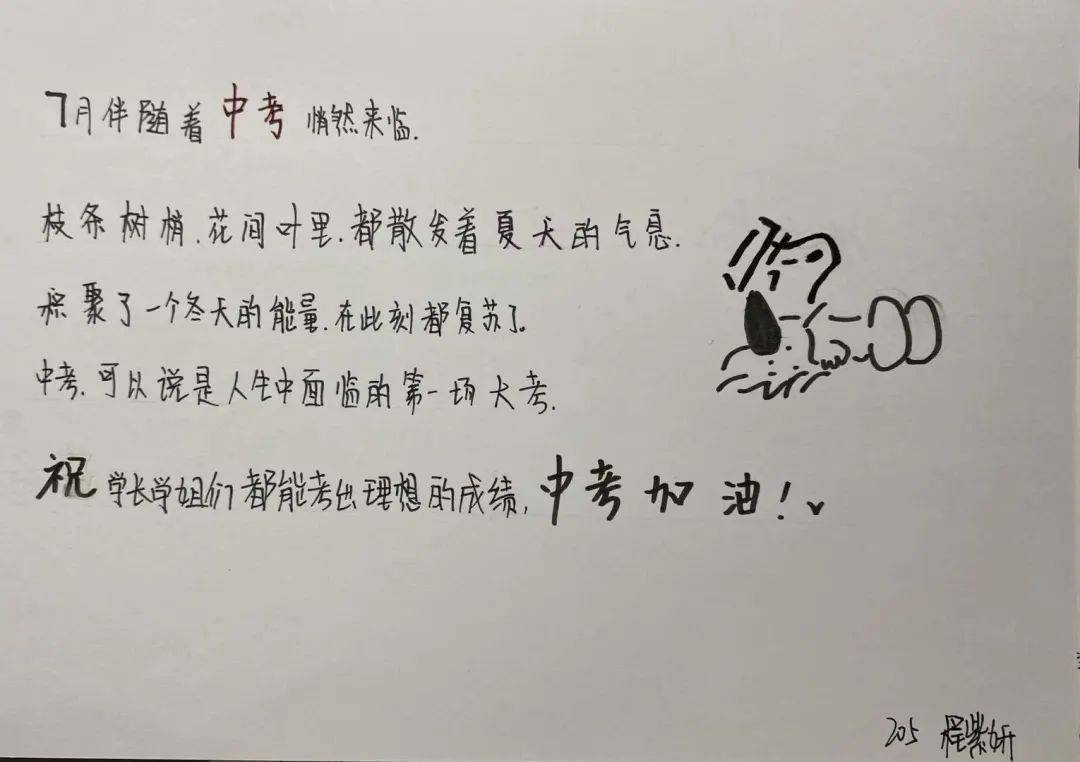 7月伴随着中考悄然来临.
枝条树梢.花间叶里.都散发着夏天的气息.
积聚了一个冬天的能量.在此刻都复苏了。
中考.可以说是人生中面临的第一场大考.
祝学长学姐们都能考出理想的成绩,中考加油!
205 程紫妍